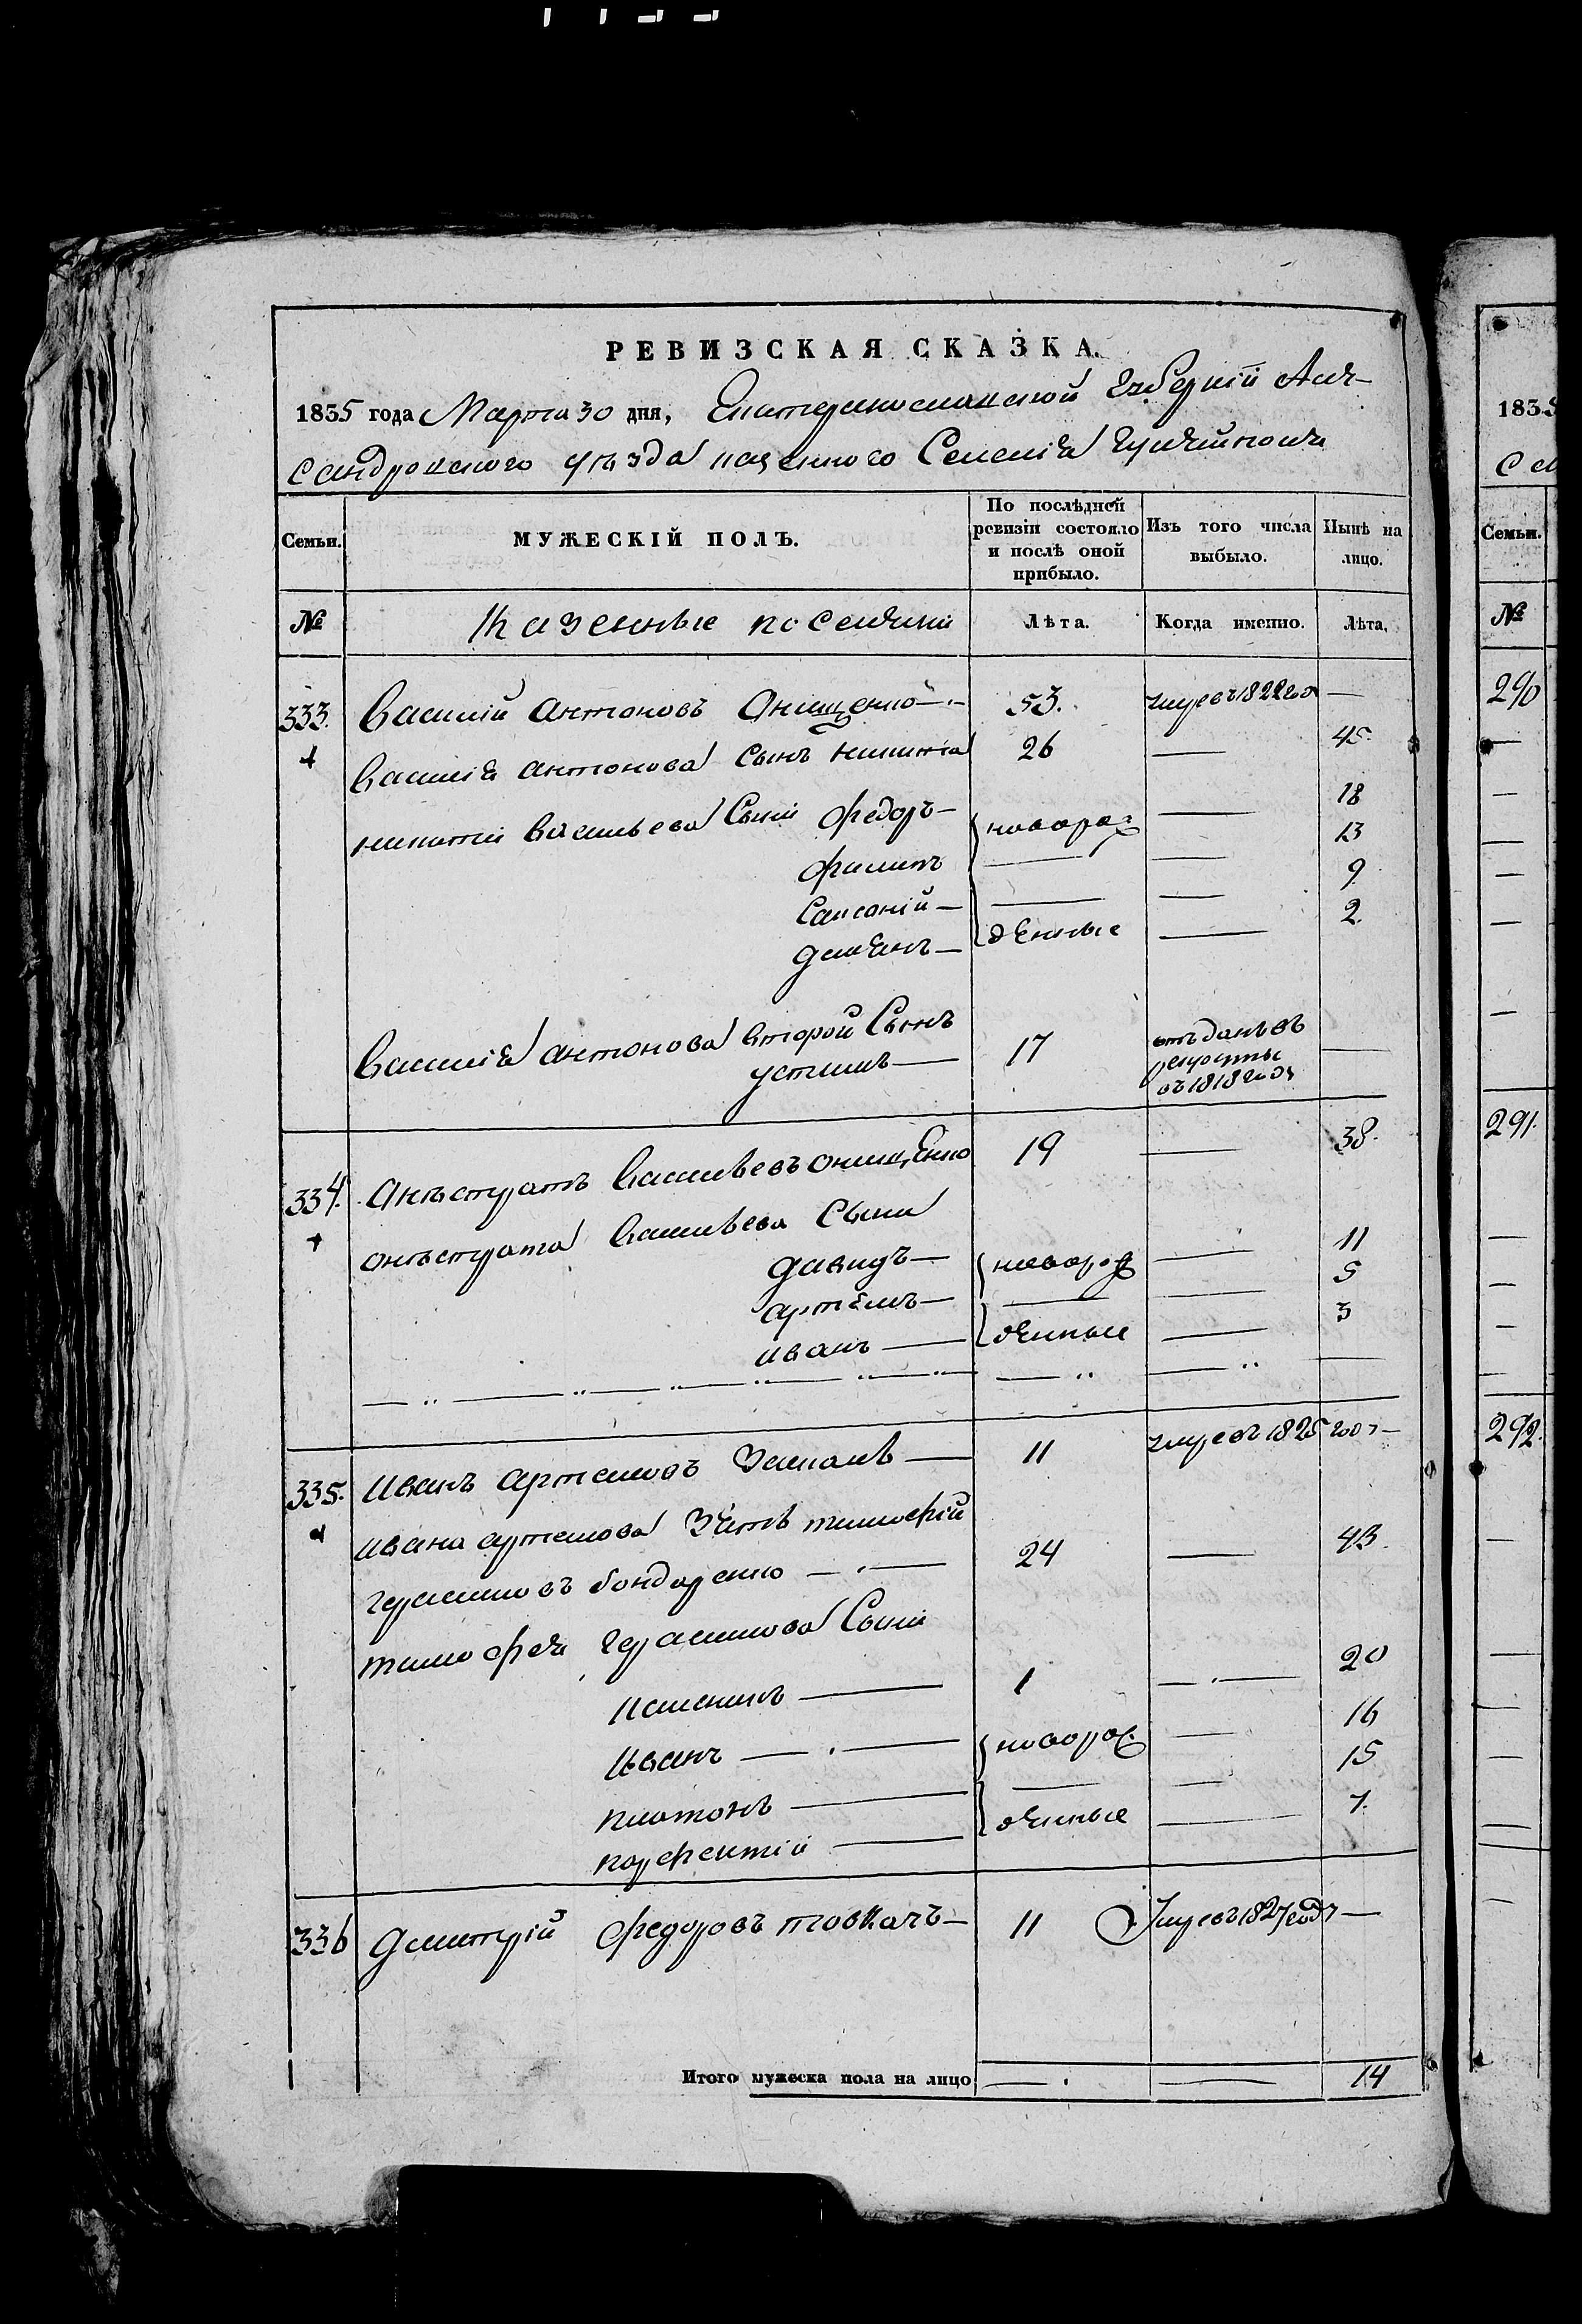 РЕВИЗСКАЯ СКАЗКА.
1835 года Марта 30 дня, Екатеринославской Губерніи Алек-
сандровскаго уѣзда казенного Селенія Гуляйполя
Семьи. МУЖЕСКІЙ ПОЛЪ. По послѣдней ревизіи состояло и послѣ оной прибыло. Изъ того числа выбыло. Нынѣ на лицо.
№ Казенные поселяни Лѣта. Когда именно. Лѣта.
333. Василій Антоновъ Онищенко 53. умре въ 1822 год —
Василія Антонова Сынъ Никита 26 — 45.
Никити Васильева Сыни Федоръ новорож — 18
Филипъ — — 13
Самсоній — — 9
Демянъ — денные — 2.
Василія Антонова второй Сынъ
Устимъ — 17 отъданъ въ рекруты въ 1818 годе —
334. Анѣстратъ Васильевъ Онищенко 19 — 38.
Онѣстрата Васильева Сыни
Давидъ — новорож — 11
Артемъ — — — 5
Иванъ — денные — 3
335. Иванъ Артемовъ 11 умре въ 1825 годе —
Ивана Артемова Зять Тимофій
Герасимовъ Бондаренко — 24 — 43.
Тимофея Герасимова Сыни
1 — 20
Иванъ — новорож — 16
Платонъ — — — 15
Порфентій — денные — 7.
336 Дмитрій Федоровъ Товкачъ — 11 Умре въ 1827 годе —
Итого мужеска пола на лицо — — 14
1835
Семьи.
№
290
291.
292.